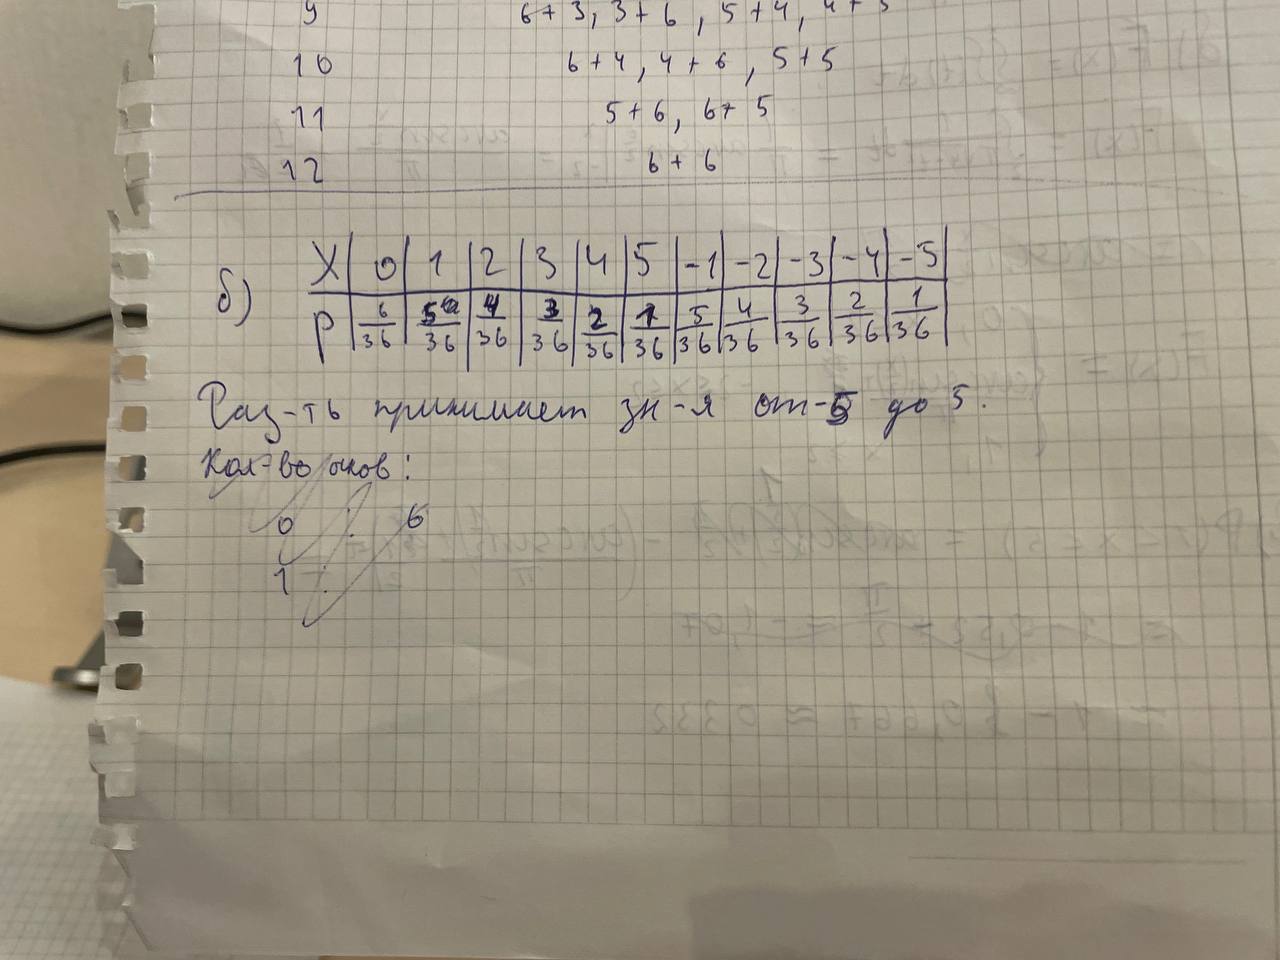 9 6+3, 3+6, 5+4, 4+5
10 6+4, 4+6, 5+5
11 5+6, 6+5
12 6+6
б)
X | 0 | 1 | 2 | 3 | 4 | 5 | -1 | -2 | -3 | -4 | -5
P | 6/36 | 5/36 | 4/36 | 3/36 | 2/36 | 1/36 | 5/36 | 4/36 | 3/36 | 2/36 | 1/36
Раз-ть принимает зн-я от -5 до 5.
Кол-во очков:
0 : 6
1 :